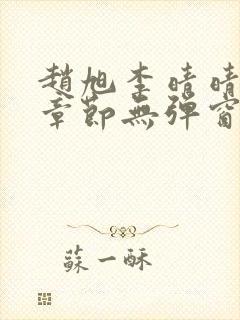 趙旭李晴晴
章節無彈窗
蘇一酥